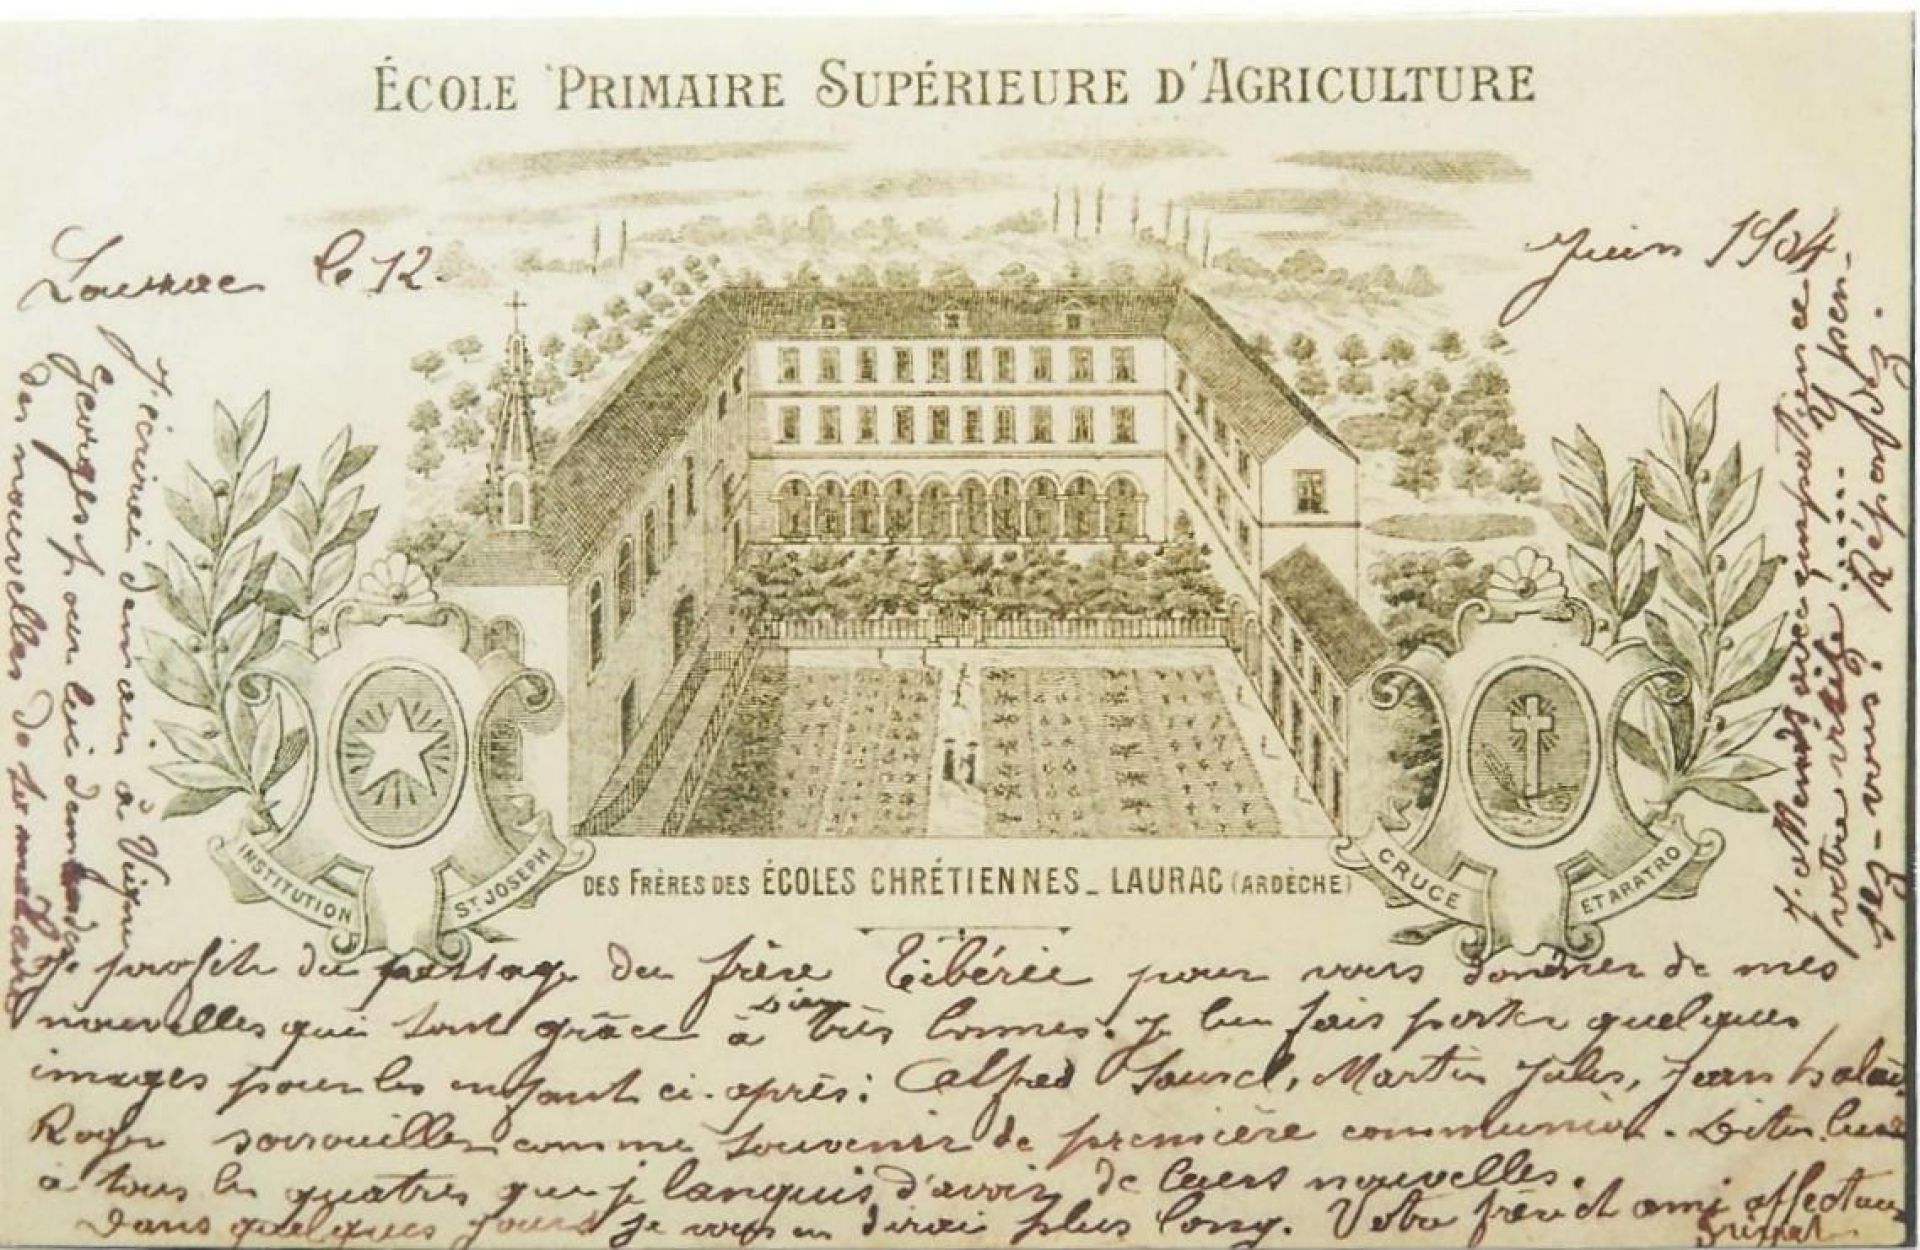 ÉCOLE PRIMAIRE SUPÉRIEURE D'AGRICULTURE
Laurac le 12 Juin 1904
J'écrirai demain à
Georges pour lui demander
des nouvelles de sa maman
J'attends avec impatience
votre visite ...... Y pen-
sez-vous? Répondez.
INSTITUTION ST. JOSEPH
CRUCE ET ARATRO
DES FRÈRES DES ÉCOLES CHRÉTIENNES_ LAURAC (ARDÈCHE)
Je profite du passage du frère Tibérie pour vous donner de mes
nouvelles qui sont grâce à Dieu très bonnes. Je leur fais porter quelques
images pour les enfant ci-après: Alfred, Martin Jules, Jean
Roger comme souvenir de première communion. Dites leur
à tous les quatres que je languis d'avoir de leurs nouvelles.
Dans quelques jours je vous en dirai plus long. Votre frère et ami affectueux